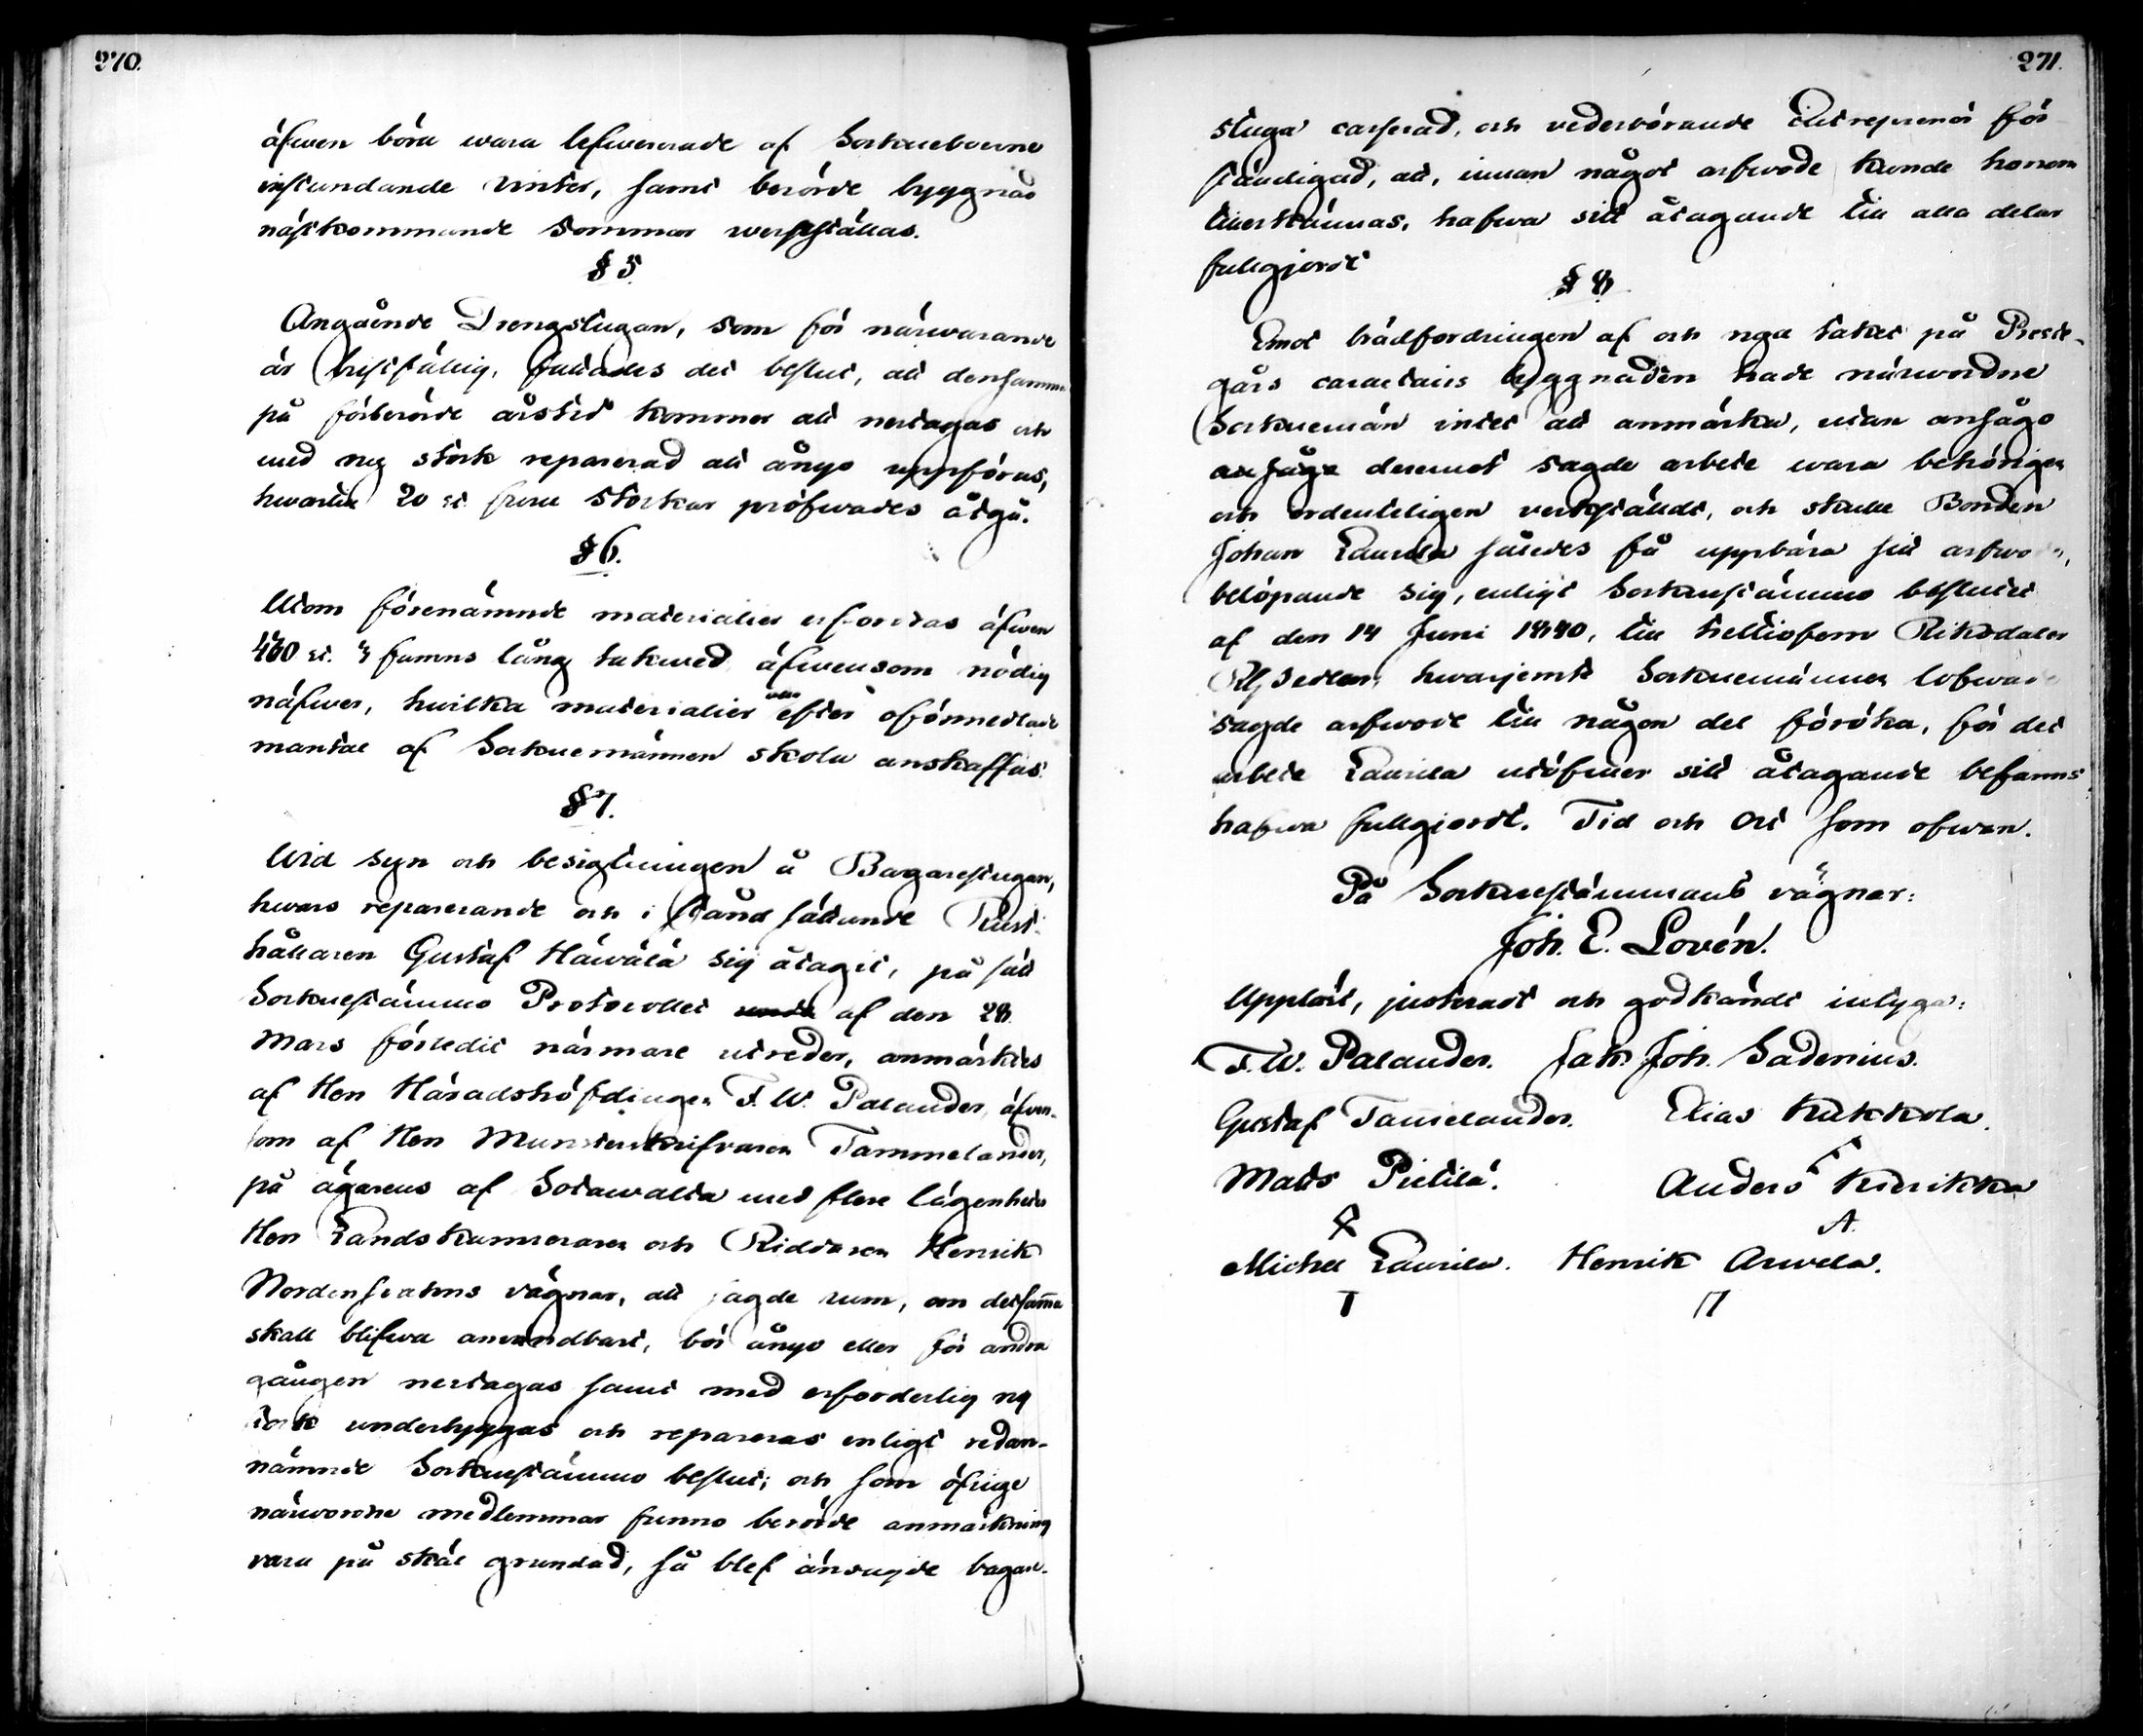 270.
äfwen böra wara lefwererade af Sockneboerne
instundande vinter, samt berörde byggnad
nästkommande Sommar werkställas.
§ 5.
Angående Drengstugan, som för närwarande
är bristfällig, fattades det beslut, att densamma
på förberörde årstid kommer att nertagas och
med ny stock reparerad att ånyo uppföras,
hwartill 20 st. furu Stockar pröfwades åtgå.
§ 6.
Utom förenämnde materialier erfordras äfwen
460 st. 4 famns lång takwed, äfwensom nödig
näfwer, hwilka materialier efter oförmedlade
mantal af Socknemännen skola anskaffas.
§ 7.
Wid syn och besigtningen å Bagarestugan,
hwars reparerande och i stånd sättande Rust-
hållaren Gustaf Häwälä sig åtagit, på sätt
Socknestämmo Protocollet af den 28
Mars förledit närmare utreder, anmärktes
af Herr Häradshöfdingen F. W. Palander, äfven-
som af Herr Munsterskrifvaren Tammelander,
på ägarens af Sotawalta med flere lägenheter
Herr Landskamreraren och Riddaren Henrik
Nordenswahns vägnar, att sagde rum, om detsama
skall blifwa användbart, bör ånyo eller för andra
gången nertagas samt med erforderlig ny
stock underbyggas och repareras enligt redan-
nämnde Sockenstämmo beslut; och som öfrige
närworne medlemmar funno berörde anmärkning
vara på skäl grundad, så blef änsagde bagare-
271.
stuga casserad, och vederbörande Entreprenör för
ständigad, att, innan något arfwode kunde honom
tillerkännas, hafwa sitt åtagande till alla delar
fullgjordt
§ 8
Emot brädfordringen af och nya taket på Prest-
gårds caractairs byggnaden hade närwordne
Sockenemän intet att anmärka, utan ansågo
ansågo deremot sagde arbete wara behörigen
och ordenteligen verkstäldt, och skulle Bonden
Johan Laurila således få uppbära sitt arfwode,
belöpande sig, enligt Sockenstämmo beslutet
af den 14 Juni 1840, till trettiofem Riksdaler
Rgssedlar, hwarjemte Socknemännen lofwade
sagde arfwode till någon del föröka, för det
arbete Laurila utöfwer sitt åtagande befanns
hafwa fullgjordt. Tid och Ort som ofwan.
På Sockenstämmans vägnar:
Joh. E. Lovén.
Uppläst, justeradt och godkändt intyga:
F. W. Palander. Jak. Joh. Sadenius.
Gustaf Tamelander. Elias Kukkola.
Matts Pietilä. Anders Kierikka
A.
Michel Laurila. Henrik Arwela.
T